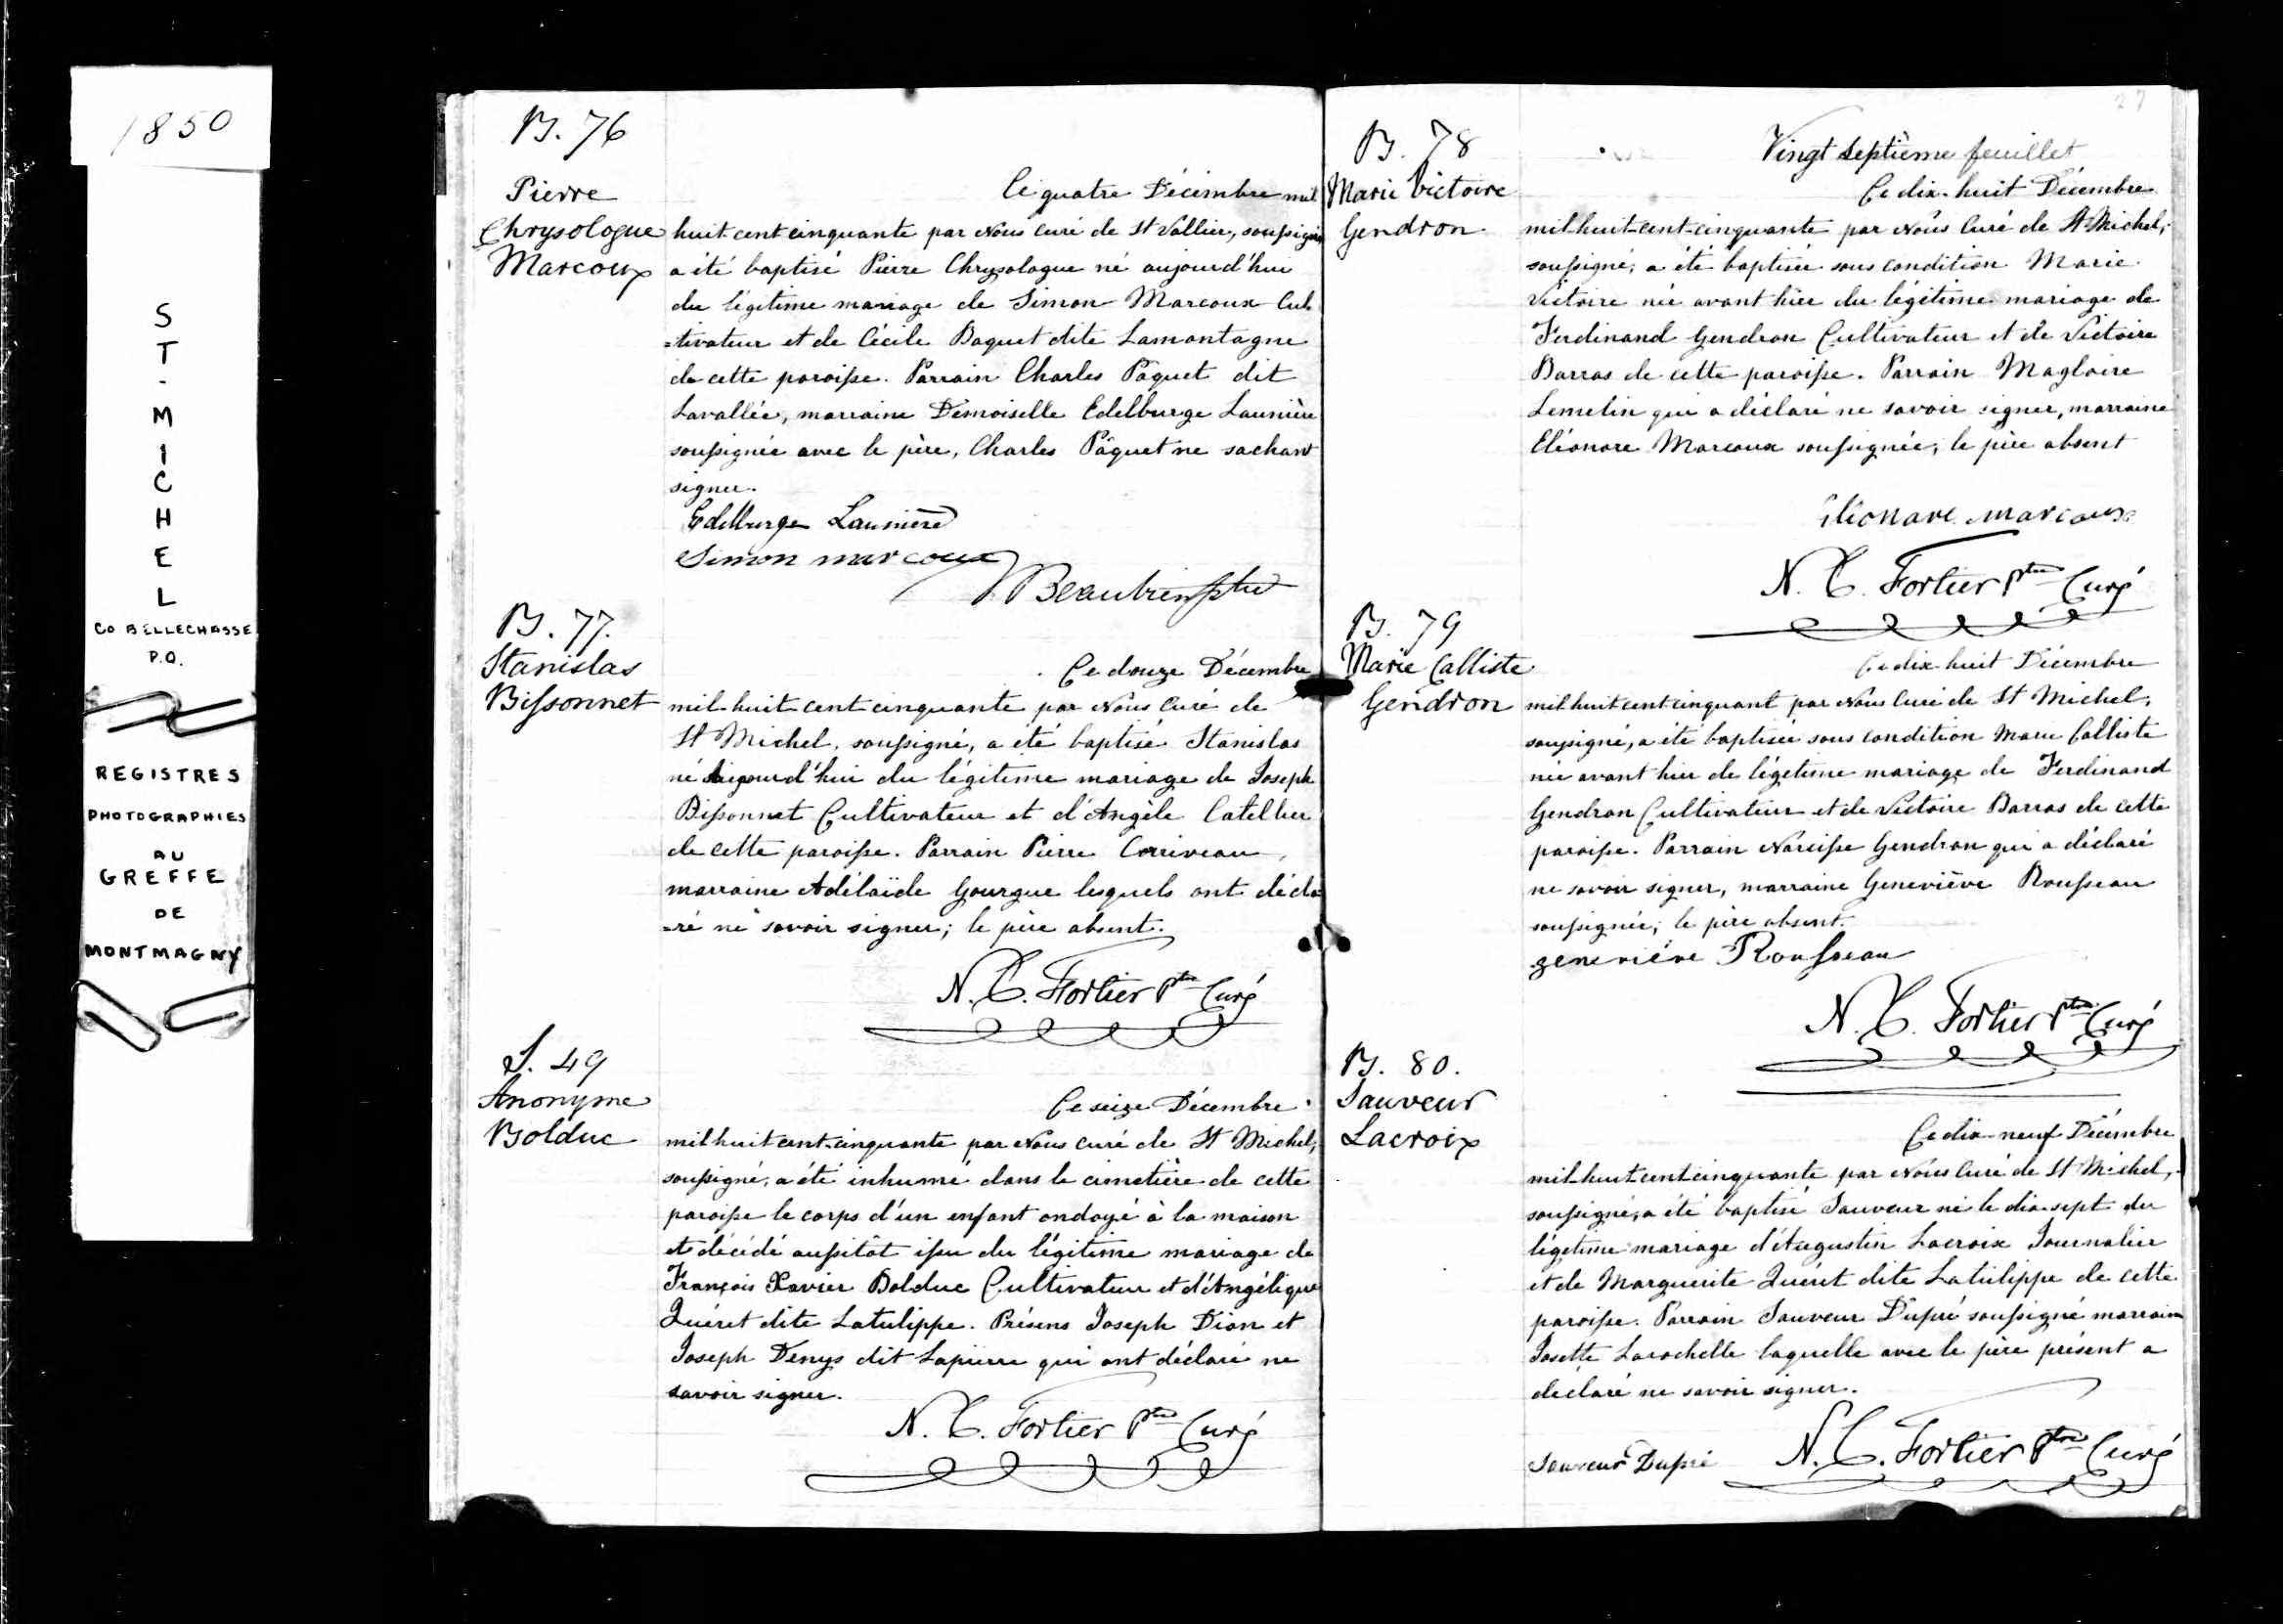 1850
ST-MICHEL
CO BELLECHASSE
P.Q.
REGISTRES
PHOTOGRAPHIES
AU
GREFFE
DE
MONTMAGNY
B. 76
Pierre
Chrysologue
Marcoux
Ce quatre Décembre mil
huit cent cinquante par Nous curé de St Vallier, soussigné
a été baptisé Pierre Chrysologue né aujourd'hui
du légitime mariage de Simon Marcoux Cul
=tivateur et de Cécile Baquet dite Lamontagne
de cette paroisse. Parrain Charles Pâquet dit
Lavallée, marraine Demoiselle Edelburge Launière
soussignée avec le père, Charles Pâquet ne sachant
signer.
Edelburge Launière
Simon marcoux
Beaubien ptre
B. 77.
Stanislas
Bissonnet
Ce douze Décembre
mil-huit-cent-cinquante par Nous Curé de
St Michel, soussigné, a été baptisé Stanislas
né aujourd'hui du légitime mariage de Joseph
Bissonnet Cultivateur et d'Angèle Catellier
de cette paroisse. Parrain Pierre Corriveau,
marraine Adélaïde Gourgue lesquels ont décla
=ré ne savoir signer; le père absent.
N. C. Fortier Ptre Curé
S. 49
Anonyme
Bolduc
Ce seize Décembre
mil huit cent-cinquante par Nous curé de St Michel,
soussigné, a été inhumé dans le cimetière de cette
paroisse le corps d'un enfant ondoyé à la maison
et décédé aussitôt issu du légitime mariage de
François Xavier Bolduc Cultivateur et d'Angélique
Quéret dite Latulippe. Présens Joseph Dion et
Joseph Denys dit Lapierre qui ont déclaré ne
savoir signer.
N. C. Fortier Ptre Curé
27
Vingt septième feuillet
B. 78
Marie Victoire
Gendron
Ce dix-huit Décembre
mil-huit-cent-cinquante par Nous Curé de St Michel,
soussigné, a été baptisée sous condition Marie
Victoire née avant hier du légitime mariage de
Ferdinand Gendron Cultivateur et de Victoire
Barras de cette paroisse. Parrain Magloire
Lemelin qui a déclaré ne savoir signer, marraine
Eléonore Marcoux soussignée; le père absent
Eléonore marcoux
N. C. Fortier Ptre Curé
B. 79
Marie Calliste
Gendron
Ce dix-huit Décembre
mil huit cent cinquant par Nous Curé de St Michel,
soussigné, a été baptisée sous condition Marie Calliste
née avant hier de légetime mariage de Ferdinand
Gendron Cultivateur et de Victoire Barras de cette
paroisse. Parrain Narcisse Gendron qui a déclaré
ne savoir signer, marraine Geneviève Rousseau
soussignée; le père absent.
geneviève Rousseau
N. C. Fortier Ptre Curé
B. 80.
Sauveur
Lacroix
Ce dix-neuf Décembre
mil-huit cent cinquante par Nous Curé de St Michel,
soussigné, a été baptisé Sauveur né le dix-sept du
légetime mariage d'Augustin Lacroix Journalier
et de Marguerite Quéret dite Latulippe de cette
paroisse. Parrain Sauveur Dupré soussigné marraine
Josette Larochelle laquelle avec le père présent a
déclaré ne savoir signer.
Sauveur Dupré N. C. Fortier Ptre Curé